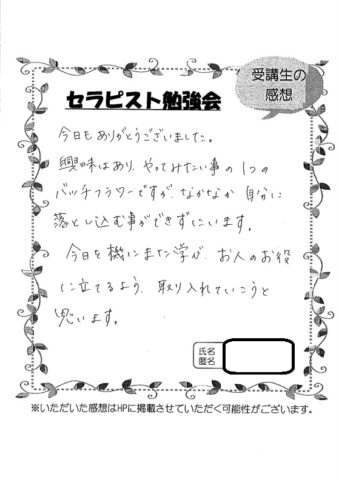 受講生の
感想
セラピスト勉強会
今日もありがとうございました。
興味はあり、やってみたい事の1つの
バッチフラワーですが、なかなか自分に
落とし込む事ができずにいます。
今日を機にまた学び、お人のお役
に立てるよう、取り入れていこうと
思います。
氏名
匿名
※いただいた感想はHPに掲載させていただく可能性がございます。